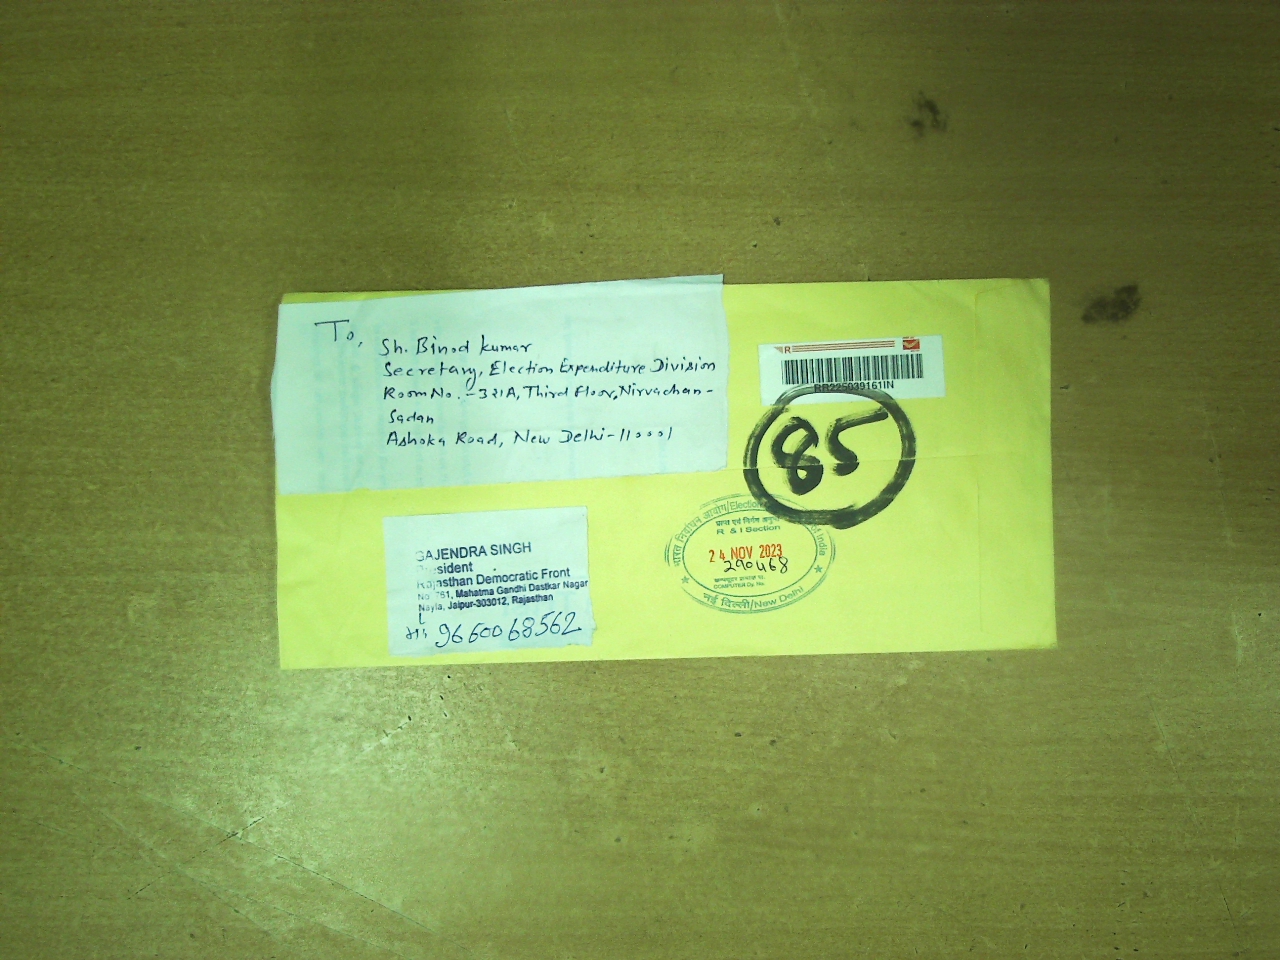 To,
Sh. Binod Kumar
Secretary, Election Expenditure Division
Room No. - 321A, Third Floor, Nirvachan-
Sadan
Ashoka Road, New Delhi-110001
R
RR225039161IN
85
भारत निर्वाचन आयोग/Election of India
प्राप्त एवं निर्गम
R & I Section
24 NOV 2023
290468
COMPUTER Dy. No.
नई दिल्ली/New Delhi
GAJENDRA SINGH
President
Rajasthan Democratic Front
No. 761, Mahatma Gandhi Dastkar Nagar
Nayla, Jaipur-303012, Rajasthan
9660068562